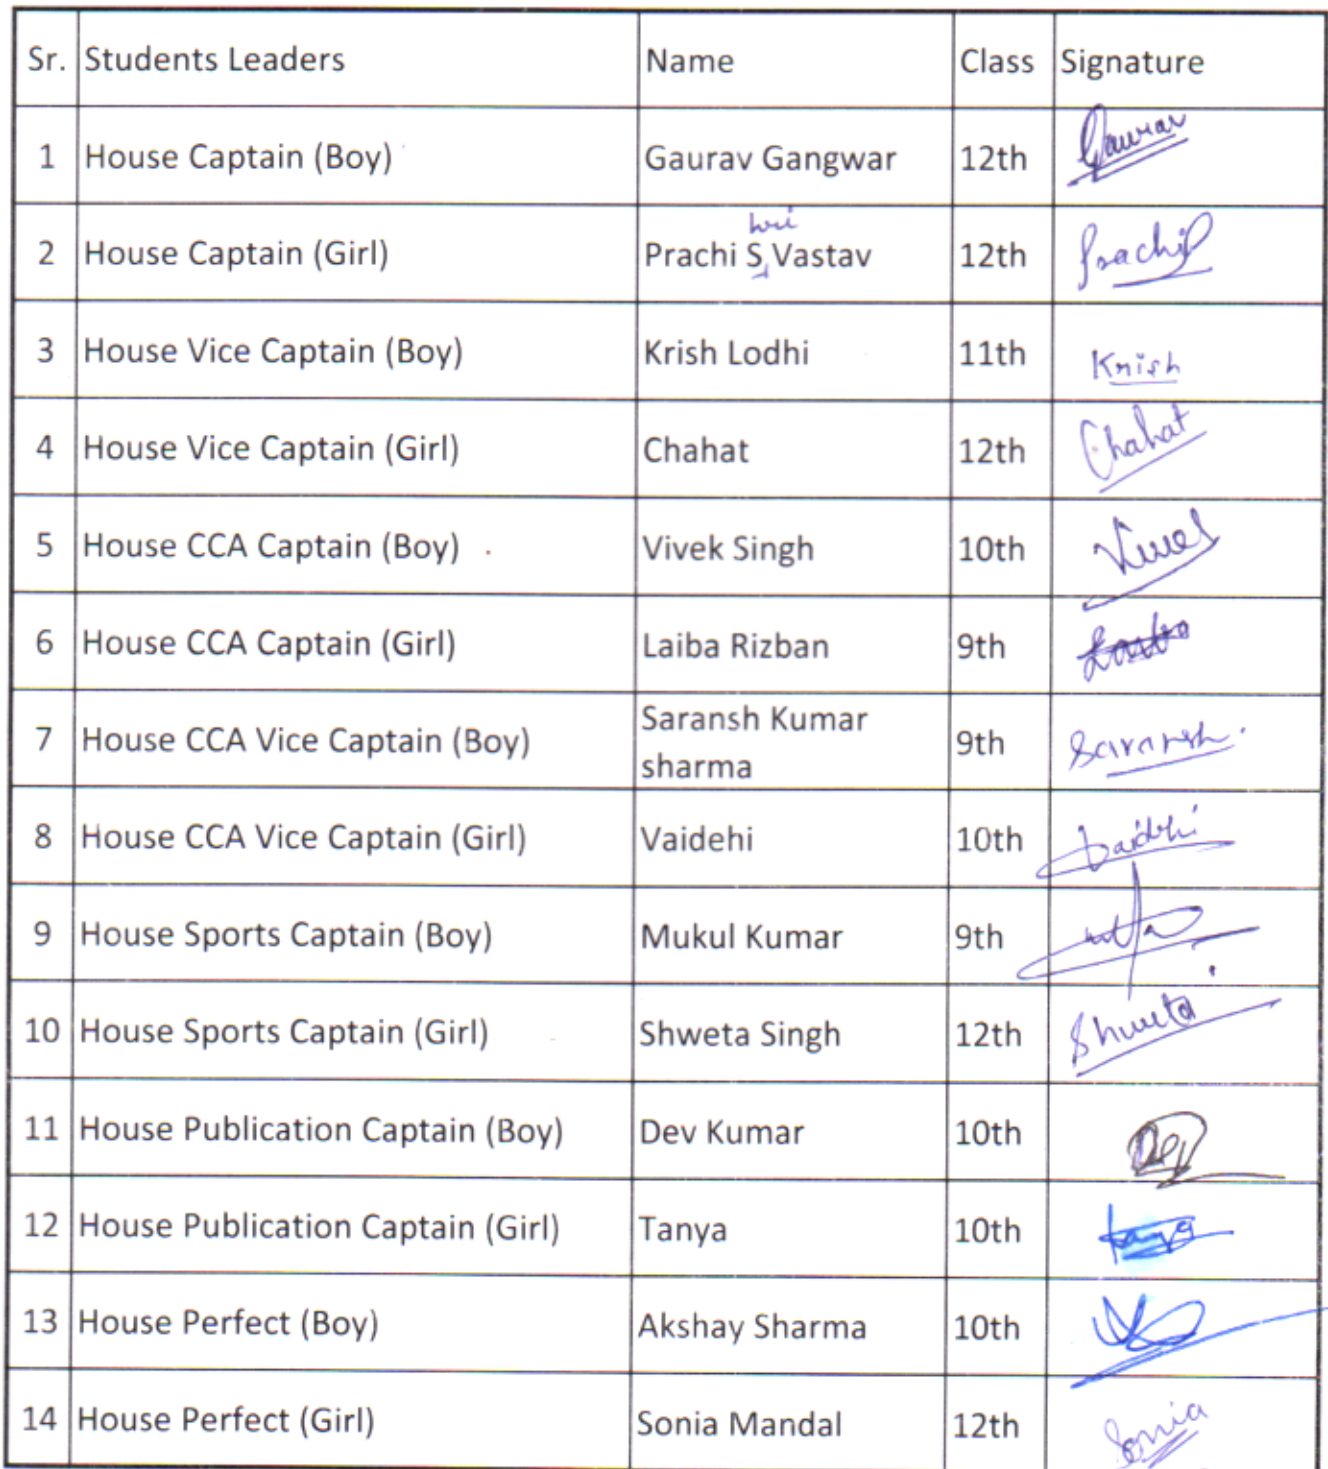 Sr. Students Leaders Name Class Signature
1 House Captain (Boy) Gaurav Gangwar 12th Gaurav
hri
2 House Captain (Girl) Prachi S Vastav 12th Prachi
3 House Vice Captain (Boy) Krish Lodhi 11th Krish
4 House Vice Captain (Girl) Chahat 12th Chahat
5 House CCA Captain (Boy) Vivek Singh 10th
6 House CCA Captain (Girl) Laiba Rizban 9th
7 House CCA Vice Captain (Boy) Saransh Kumar 9th Saransh
sharma
8 House CCA Vice Captain (Girl) Vaidehi 10th Vaidehi
9 House Sports Captain (Boy) Mukul Kumar 9th
10 House Sports Captain (Girl) Shweta Singh 12th Shweta
11 House Publication Captain (Boy) Dev Kumar 10th Dev
12 House Publication Captain (Girl) Tanya 10th Tanya
13 House Perfect (Boy) Akshay Sharma 10th
14 House Perfect (Girl) Sonia Mandal 12th Sonia